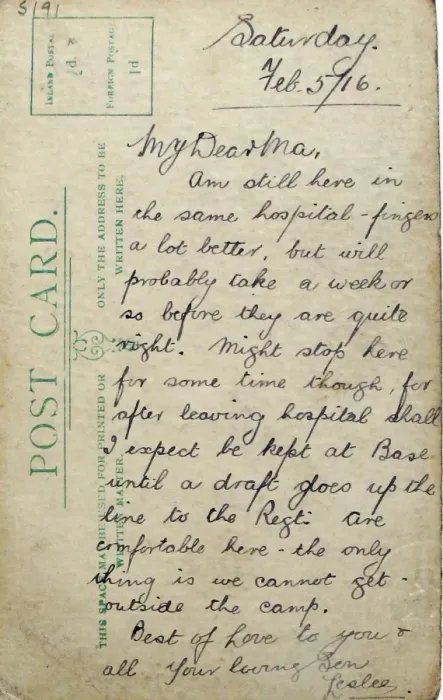 5191
INLAND POSTAGE
½d.
FOREIGN POSTAGE
1d
POST CARD.
THIS SPACE MAY BE USED FOR PRINTED OR
WRITTEN MATTER.
ONLY THE ADDRESS TO BE
WRITTEN HERE.
Saturday.
Feb. 5/16.
My Dear Ma,
Am still here in
the same hospital - fingers
a lot better, but will
probably take a week or
so before they are quite
right. Might stop here
for some time though, for
after leaving hospital shall
I expect be kept at Base
until a draft goes up the
line to the Regt. Are
comfortable here - the only
thing is we cannot get -
outside the camp.
Best of Love to you &
all Your loving Son
Leslie.